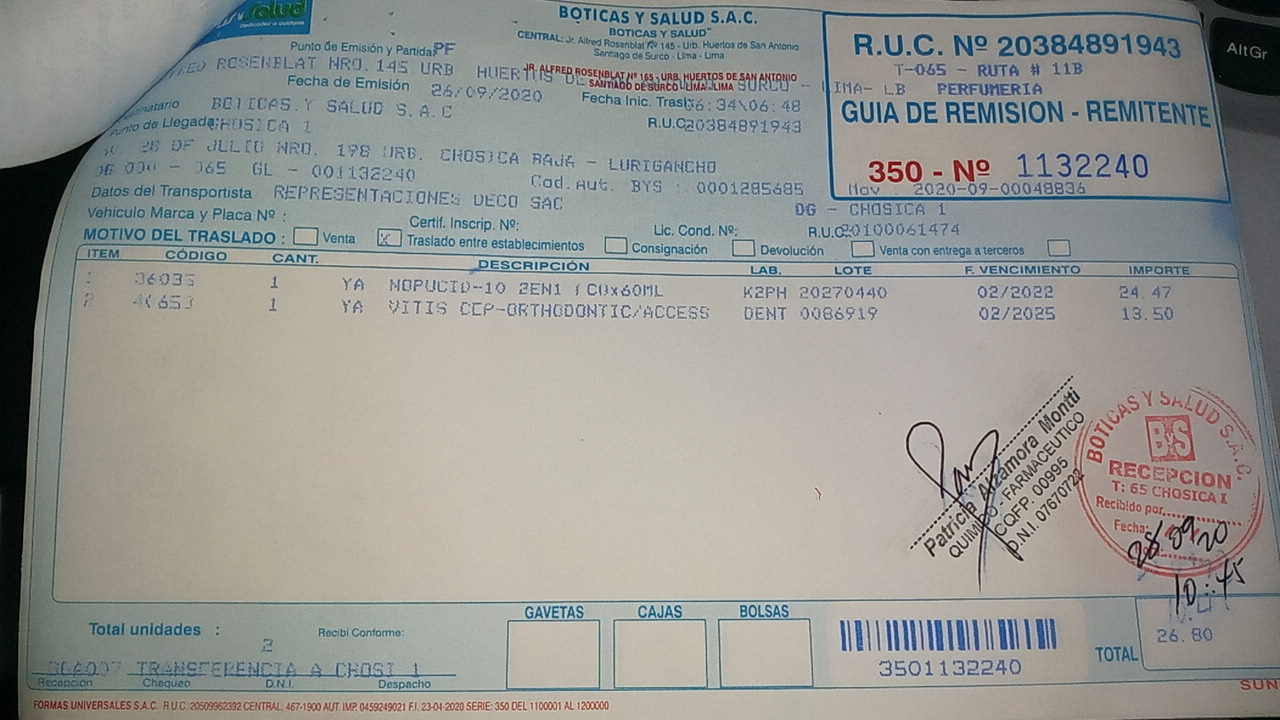 BOTICAS Y SALUD S.A.C.
BOTICAS Y SALUD
CENTRAL: Jr. Alfred Rosenblat Nº 145 - Urb. Huertos de San Antonio
Santiago de Surco - Lima - Lima
Punto de Emisión y Partida PF
ROSENBLAT NRO. 145 URB HUERTOS DE SURCO - LIMA- LB
JR. ALFRED ROSENBLAT Nº 165 - URB. HUERTOS DE SAN ANTONIO
SANTIAGO DE SURCO - LIMA - LIMA
Fecha de Emisión 26/09/2020 Fecha Inic. Trasl 06:48
BOTICAS Y SALUD S.A.C R.U.C. 20384891943
Punto de Llegada CHOSICA 1
28 DE JULIO NRO. 198 URB. CHOSICA BAJA - LURIGANCHO
GL - 001132240 Cod.Aut. BYS : 0001285685
R.U.C. Nº 20384891943
T-065 - RUTA # 11B
PERFUMERIA
GUIA DE REMISION - REMITENTE
350 - Nº 1132240
Mov 2020-09-00048836
Datos del Transportista REPRESENTACIONES DECO SAC DG - CHOSICA 1
Vehiculo Marca y Placa Nº : Certif. Inscrip. Nº: Lic. Cond. Nº: R.U.C. 20100061474
MOTIVO DEL TRASLADO : Venta X Traslado entre establecimientos Consignación Devolución Venta con entrega a terceros
ITEM CÓDIGO CANT. DESCRIPCIÓN LAB. LOTE F. VENCIMIENTO IMPORTE
1 36035 1 YA NOPUCID-10 2EN1 K2PH 20270440 02/2022 24.47
2 1 YA VITIS CEP-ORTHODONTIC/ACCESS DENT 0086919 02/2025 13.50
Patricia Alzamora Montti
QUIMICO - FARMACEUTICO
CQFP. 00995
D.N.I. 07670722
BOTICAS Y SALUD S.A.C.
B&S
RECEPCION
T: 65 CHOSICA I
Recibido por
Fecha: 28/09/20
10:45
GAVETAS CAJAS BOLSAS
Total unidades : 2 Recibí Conforme:
TRANSFERENCIA A CHOSI 1
Recepción Chequeo D.N.I. Despacho
3501132240
TOTAL 26.80
SUN
FORMAS UNIVERSALES S.A.C. R.U.C. 20509962392 CENTRAL: 467-1900 AUT. IMP. 0459249021 F.I. 23-04-2020 SERIE: 350 DEL 1100001 AL 1200000
AltGr